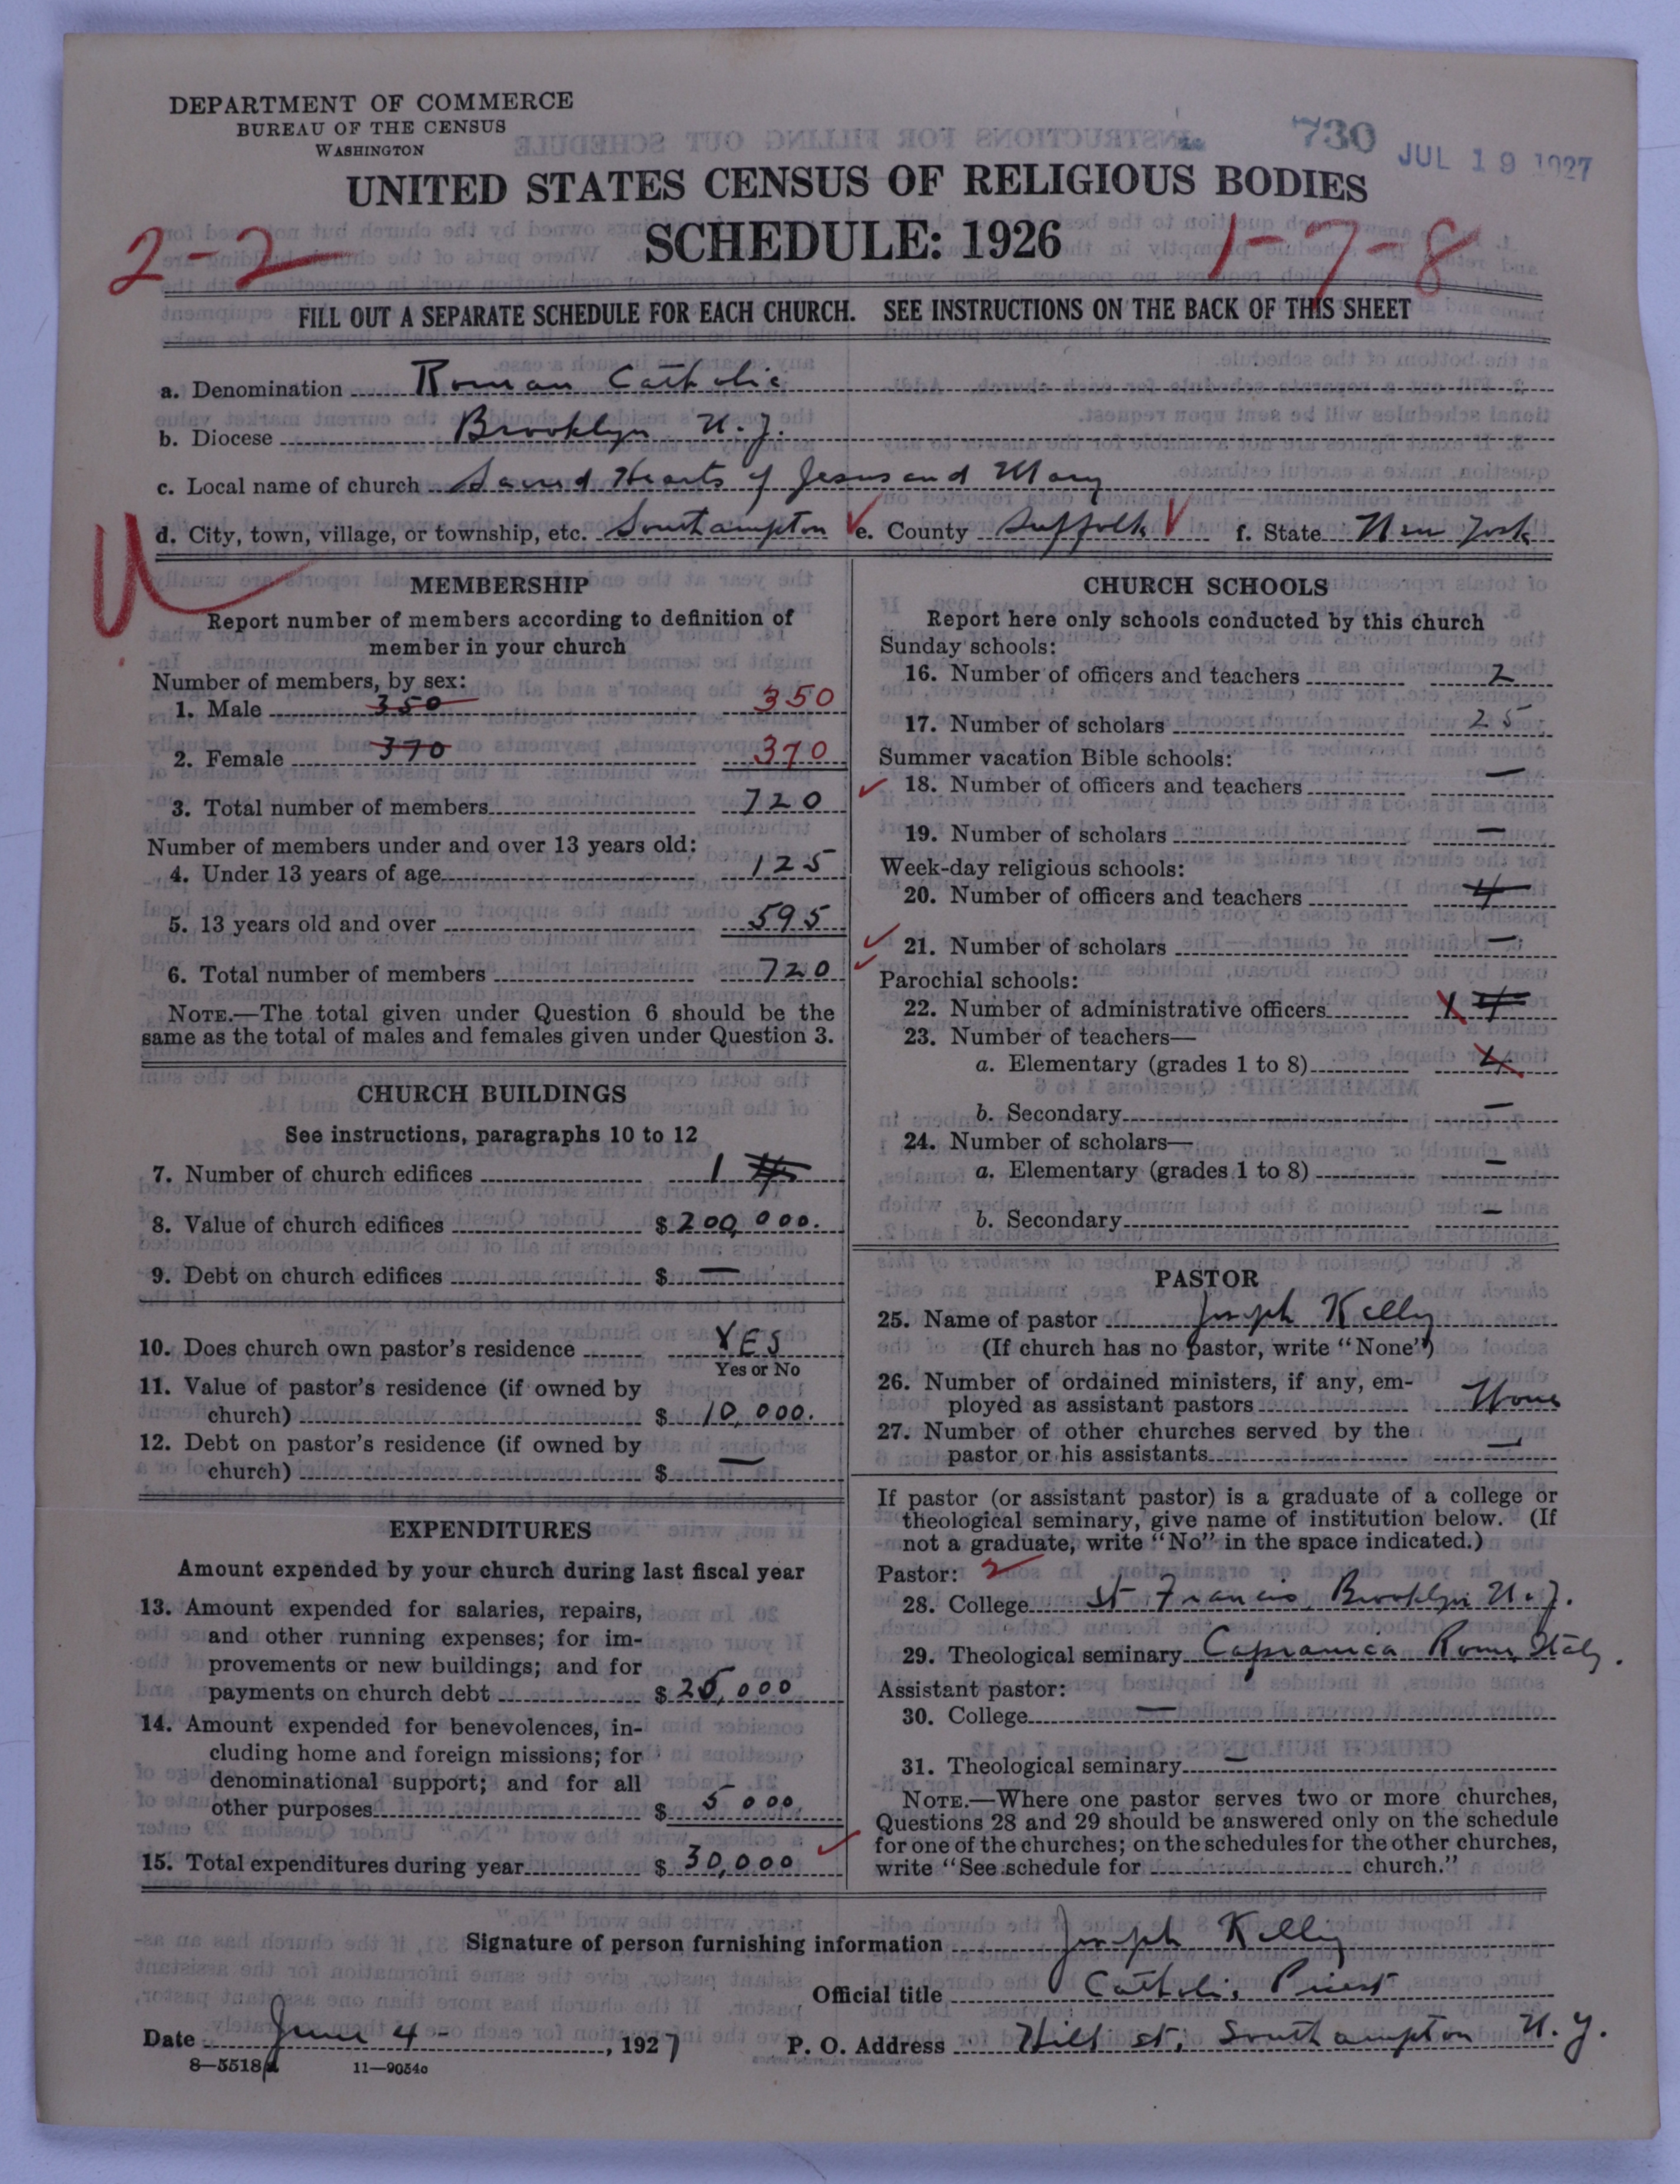 DEPARTMENT OF COMMERCE
BUREAU OF THE CENSUS
WASHINGTON
730
JUL 19 1927
UNITED STATES CENSUS OF RELIGIOUS BODIES
SCHEDULE: 1926
2-2
1-7-8
FILL OUT A SEPARATE SCHEDULE FOR EACH CHURCH. SEE INSTRUCTIONS ON THE BACK OF THIS SHEET
a. Denomination Roman Catholic
b. Diocese Brooklyn N.Y.
c. Local name of church Sacred Hearts of Jesus and Mary
d. City, town, village, or township, etc. Southampton e. County Suffolk f. State New York
MEMBERSHIP
Report number of members according to definition of
member in your church
Number of members, by sex:
1. Male 350 350
2. Female 370 370
3. Total number of members 720
Number of members under and over 13 years old:
4. Under 13 years of age 125
5. 13 years old and over 595
6. Total number of members 720
NOTE.—The total given under Question 6 should be the
same as the total of males and females given under Question 3.
CHURCH BUILDINGS
See instructions, paragraphs 10 to 12
7. Number of church edifices 1
8. Value of church edifices $ 200,000.
9. Debt on church edifices $ —
10. Does church own pastor's residence YES
Yes or No
11. Value of pastor's residence (if owned by
church) $ 10,000.
12. Debt on pastor's residence (if owned by
church) $ —
EXPENDITURES
Amount expended by your church during last fiscal year
13. Amount expended for salaries, repairs,
and other running expenses; for im-
provements or new buildings; and for
payments on church debt $ 25,000
14. Amount expended for benevolences, in-
cluding home and foreign missions; for
denominational support; and for all
other purposes $ 5000.
15. Total expenditures during year $ 30,000
CHURCH SCHOOLS
Report here only schools conducted by this church
Sunday schools:
16. Number of officers and teachers 2
17. Number of scholars 25
Summer vacation Bible schools:
18. Number of officers and teachers —
19. Number of scholars —
Week-day religious schools:
20. Number of officers and teachers 4
21. Number of scholars —
Parochial schools:
22. Number of administrative officers 1 4
23. Number of teachers—
a. Elementary (grades 1 to 8) 4
b. Secondary —
24. Number of scholars—
a. Elementary (grades 1 to 8) —
b. Secondary —
PASTOR
25. Name of pastor Joseph Kelly
(If church has no pastor, write "None")
26. Number of ordained ministers, if any, em-
ployed as assistant pastors None
27. Number of other churches served by the
pastor or his assistants —
If pastor (or assistant pastor) is a graduate of a college or
theological seminary, give name of institution below. (If
not a graduate, write "No" in the space indicated.)
Pastor: 2
28. College St Francis, Brooklyn N.Y.
29. Theological seminary Capranica Rome, Italy.
Assistant pastor:
30. College —
31. Theological seminary —
NOTE.—Where one pastor serves two or more churches,
Questions 28 and 29 should be answered only on the schedule
for one of the churches; on the schedules for the other churches,
write "See schedule for church."
Signature of person furnishing information Joseph Kelly
Official title Catholic Priest
Date June 4 - , 1927 P. O. Address Hill st, Southampton N.Y.
8—5518a 11—9054c